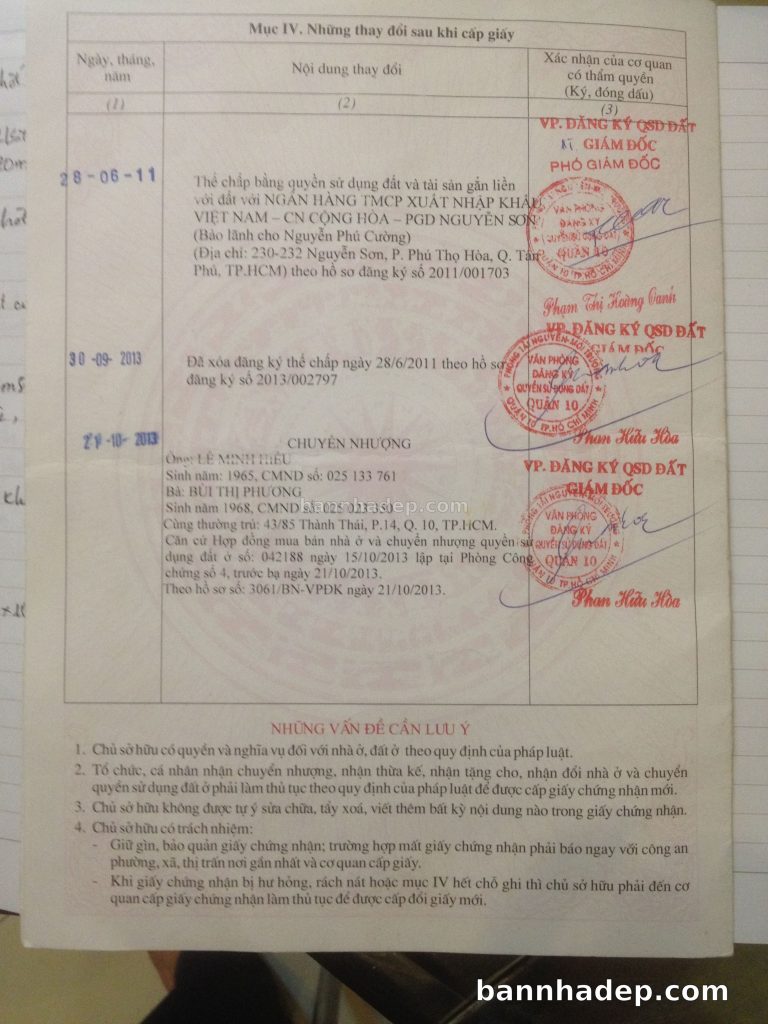 Mục IV. Những thay đổi sau khi cấp giấy
Ngày, tháng, năm
Nội dung thay đổi
Xác nhận của cơ quan
có thẩm quyền
(Ký, đóng dấu)
(1)
(2)
(3)
28-06-11
Thế chấp bằng quyền sử dụng đất và tài sản gắn liền
với đất với NGÂN HÀNG TMCP XUẤT NHẬP KHẨU
VIỆT NAM – CN CỘNG HÒA – PGD NGUYỄN SƠN
(Bảo lãnh cho Nguyễn Phú Cường)
(Địa chỉ: 230-232 Nguyễn Sơn, P. Phú Thọ Hòa, Q. Tân
Phú, TP.HCM) theo hồ sơ đăng ký số 2011/001703
VP. ĐĂNG KÝ QSD ĐẤT
GIÁM ĐỐC
PHÓ GIÁM ĐỐC
VĂN PHÒNG
ĐĂNG KÝ
QUYỀN SỬ DỤNG ĐẤT
QUẬN 10
QUẬN 10 TP.HỒ CHÍ MINH
Phạm Thị Hoàng Oanh
30-09-2013
Đã xóa đăng ký thế chấp ngày 28/6/2011 theo hồ sơ
đăng ký số 2013/002797
VP. ĐĂNG KÝ QSD ĐẤT
GIÁM ĐỐC
PHÒNG TÀI NGUYÊN-MÔI TRƯỜNG
VĂN PHÒNG
ĐĂNG KÝ
QUYỀN SỬ DỤNG ĐẤT
QUẬN 10
QUẬN 10 TP.HỒ CHÍ MINH
Phan Hữu Hòa
-10-2013
CHUYỂN NHƯỢNG
Ông: LÊ MINH HIẾU
Sinh năm: 1965, CMND số: 025 133 761
Bà: BÙI THỊ PHƯƠNG
Sinh năm 1968, CMND số: 025 023 350
Cùng thường trú: 43/85 Thành Thái, P.14, Q. 10, TP.HCM.
Căn cứ Hợp đồng mua bán nhà ở và chuyển nhượng quyền sử
dụng đất ở số: 042188 ngày 15/10/2013 lập tại Phòng Công
chứng số 4, trước bạ ngày 21/10/2013.
Theo hồ sơ số: 3061/BN-VPĐK ngày 21/10/2013.
VP. ĐĂNG KÝ QSD ĐẤT
GIÁM ĐỐC
PHÒNG TÀI NGUYÊN-MÔI TRƯỜNG
VĂN PHÒNG
ĐĂNG KÝ
QUYỀN SỬ DỤNG ĐẤT
QUẬN 10
QUẬN 10 TP.HỒ CHÍ MINH
Phan Hữu Hòa
bannhadep.com
NHỮNG VẤN ĐỀ CẦN LƯU Ý
1. Chủ sở hữu có quyền và nghĩa vụ đối với nhà ở, đất ở theo quy định của pháp luật.
2. Tổ chức, cá nhân nhận chuyển nhượng, nhận thừa kế, nhận tặng cho, nhận đổi nhà ở và chuyển
quyền sử dụng đất ở phải làm thủ tục theo quy định của pháp luật để được cấp giấy chứng nhận mới.
3. Chủ sở hữu không được tự ý sửa chữa, tẩy xoá, viết thêm bất kỳ nội dung nào trong giấy chứng nhận.
4. Chủ sở hữu có trách nhiệm:
- Giữ gìn, bảo quản giấy chứng nhận; trường hợp mất giấy chứng nhận phải báo ngay với công an
phường, xã, thị trấn nơi gần nhất và cơ quan cấp giấy.
- Khi giấy chứng nhận bị hư hỏng, rách nát hoặc mục IV hết chỗ ghi thì chủ sở hữu phải đến cơ
quan cấp giấy chứng nhận làm thủ tục để được cấp đổi giấy mới.
bannhadep.com